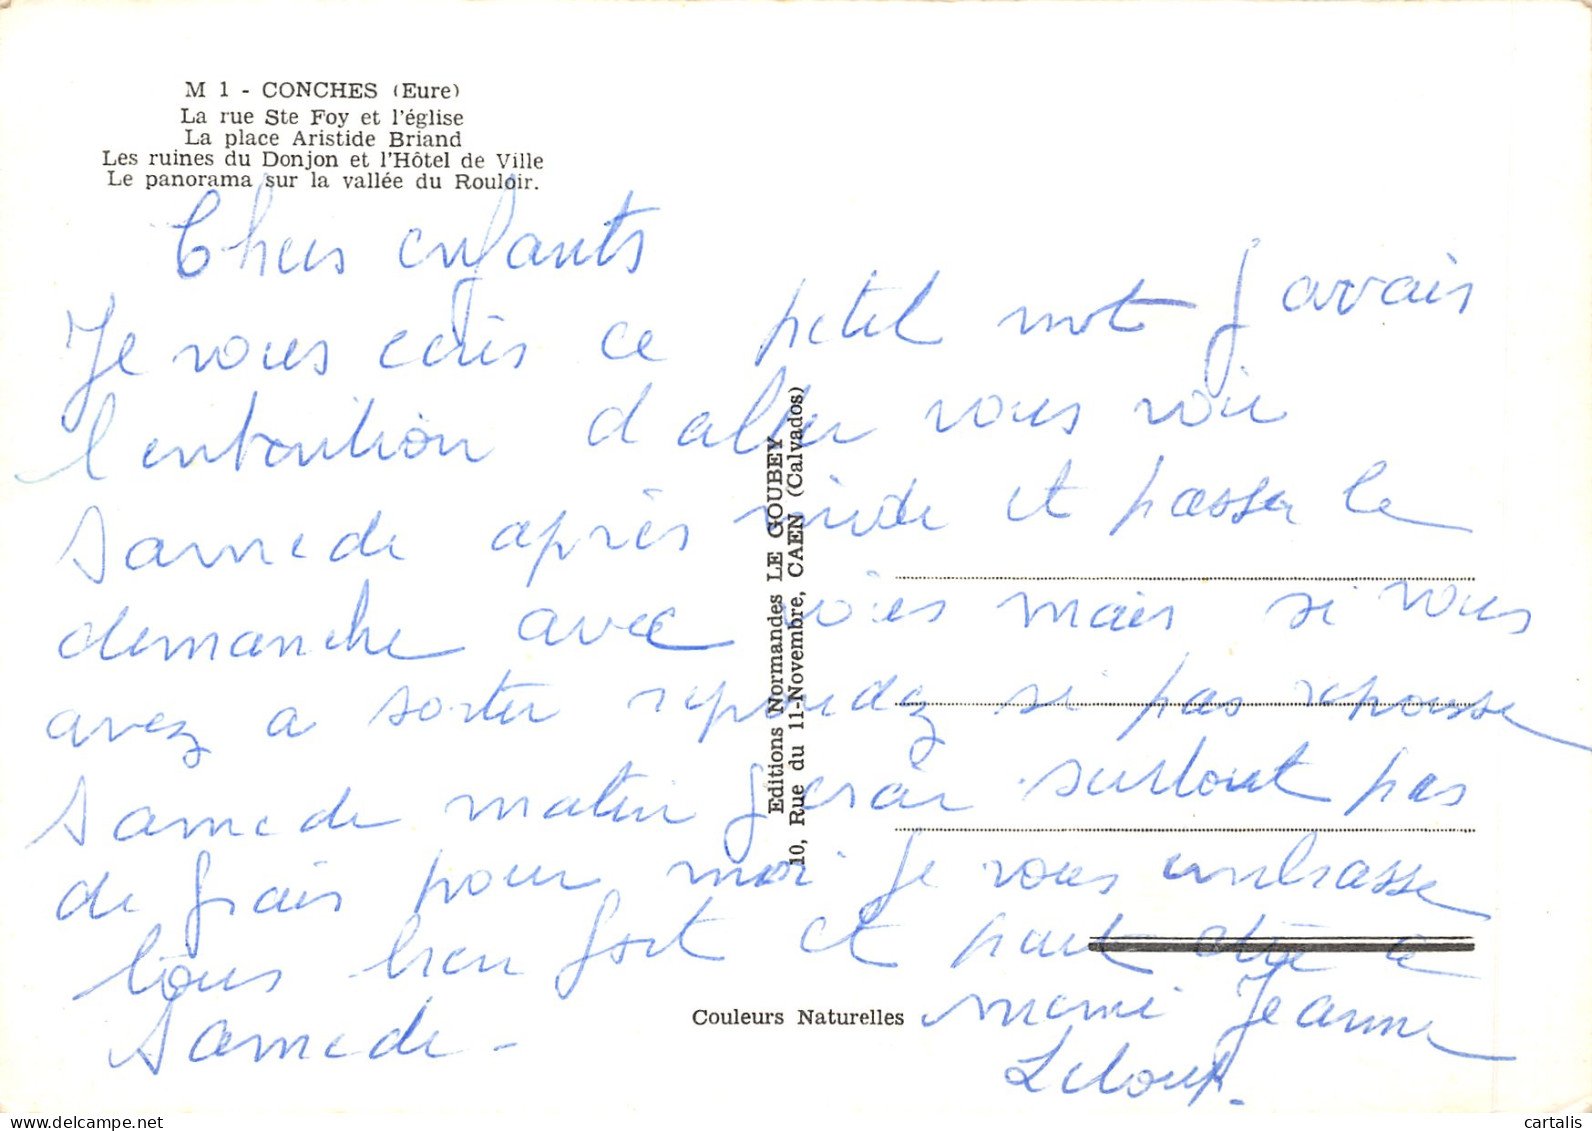 M 1 - CONCHES (Eure)
La rue Ste Foy et l'église
La place Aristide Briand
Les ruines du Donjon et l'Hôtel de Ville
Le panorama sur la vallée du Rouloir.
Chers enfants
Je vous ecris ce petit mot j avais
l entention d aller vous voir
Samede après mide et passer le
demanche avec vous mais si vous
avez a sorter repondez si pas reponse
Samede matin j erai surtout pas
de frais pour moi je vous embrasse
tous bien fort et peut etre a
Samede - mami Jeanne
Leloup.
Editions Normandes LE GOUBEY
10, Rue du 11-Novembre, CAEN (Calvados)
Couleurs Naturelles
cartalis